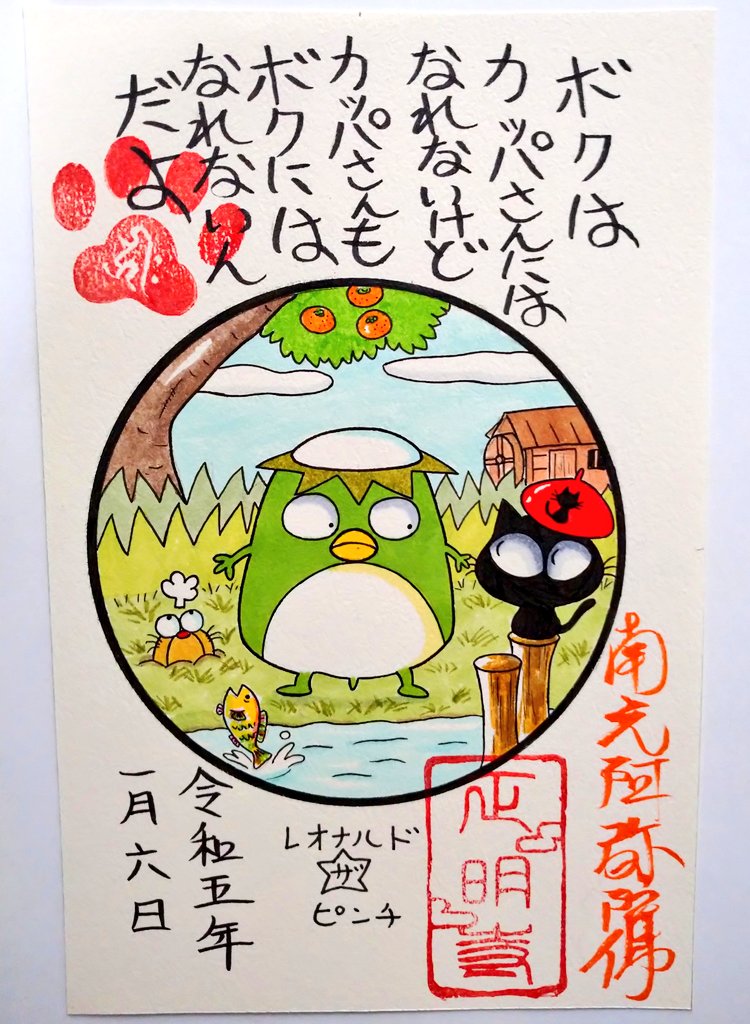 ボクは
カッパさんには
なれないけど
カッパさんも
ボクには
なれないん
だよ
南无阿弥陀佛
正明寺
レオナルド
ザ
ピンチ
令和五年
一月六日